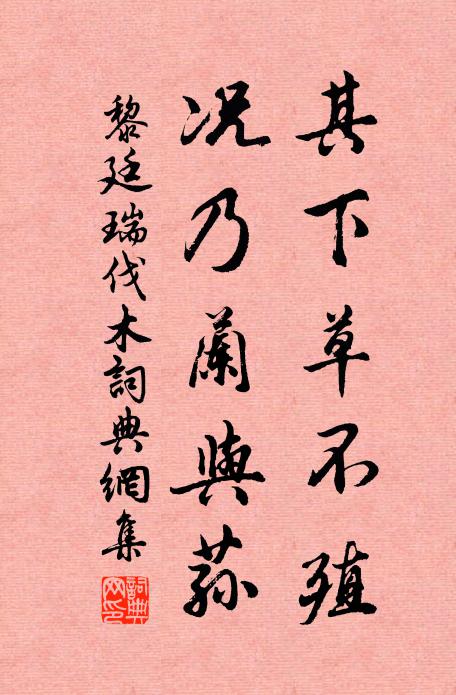 其下草不殖
况乃蘭與蓀
黎廷瑞伐木詞典網集
詞典网印